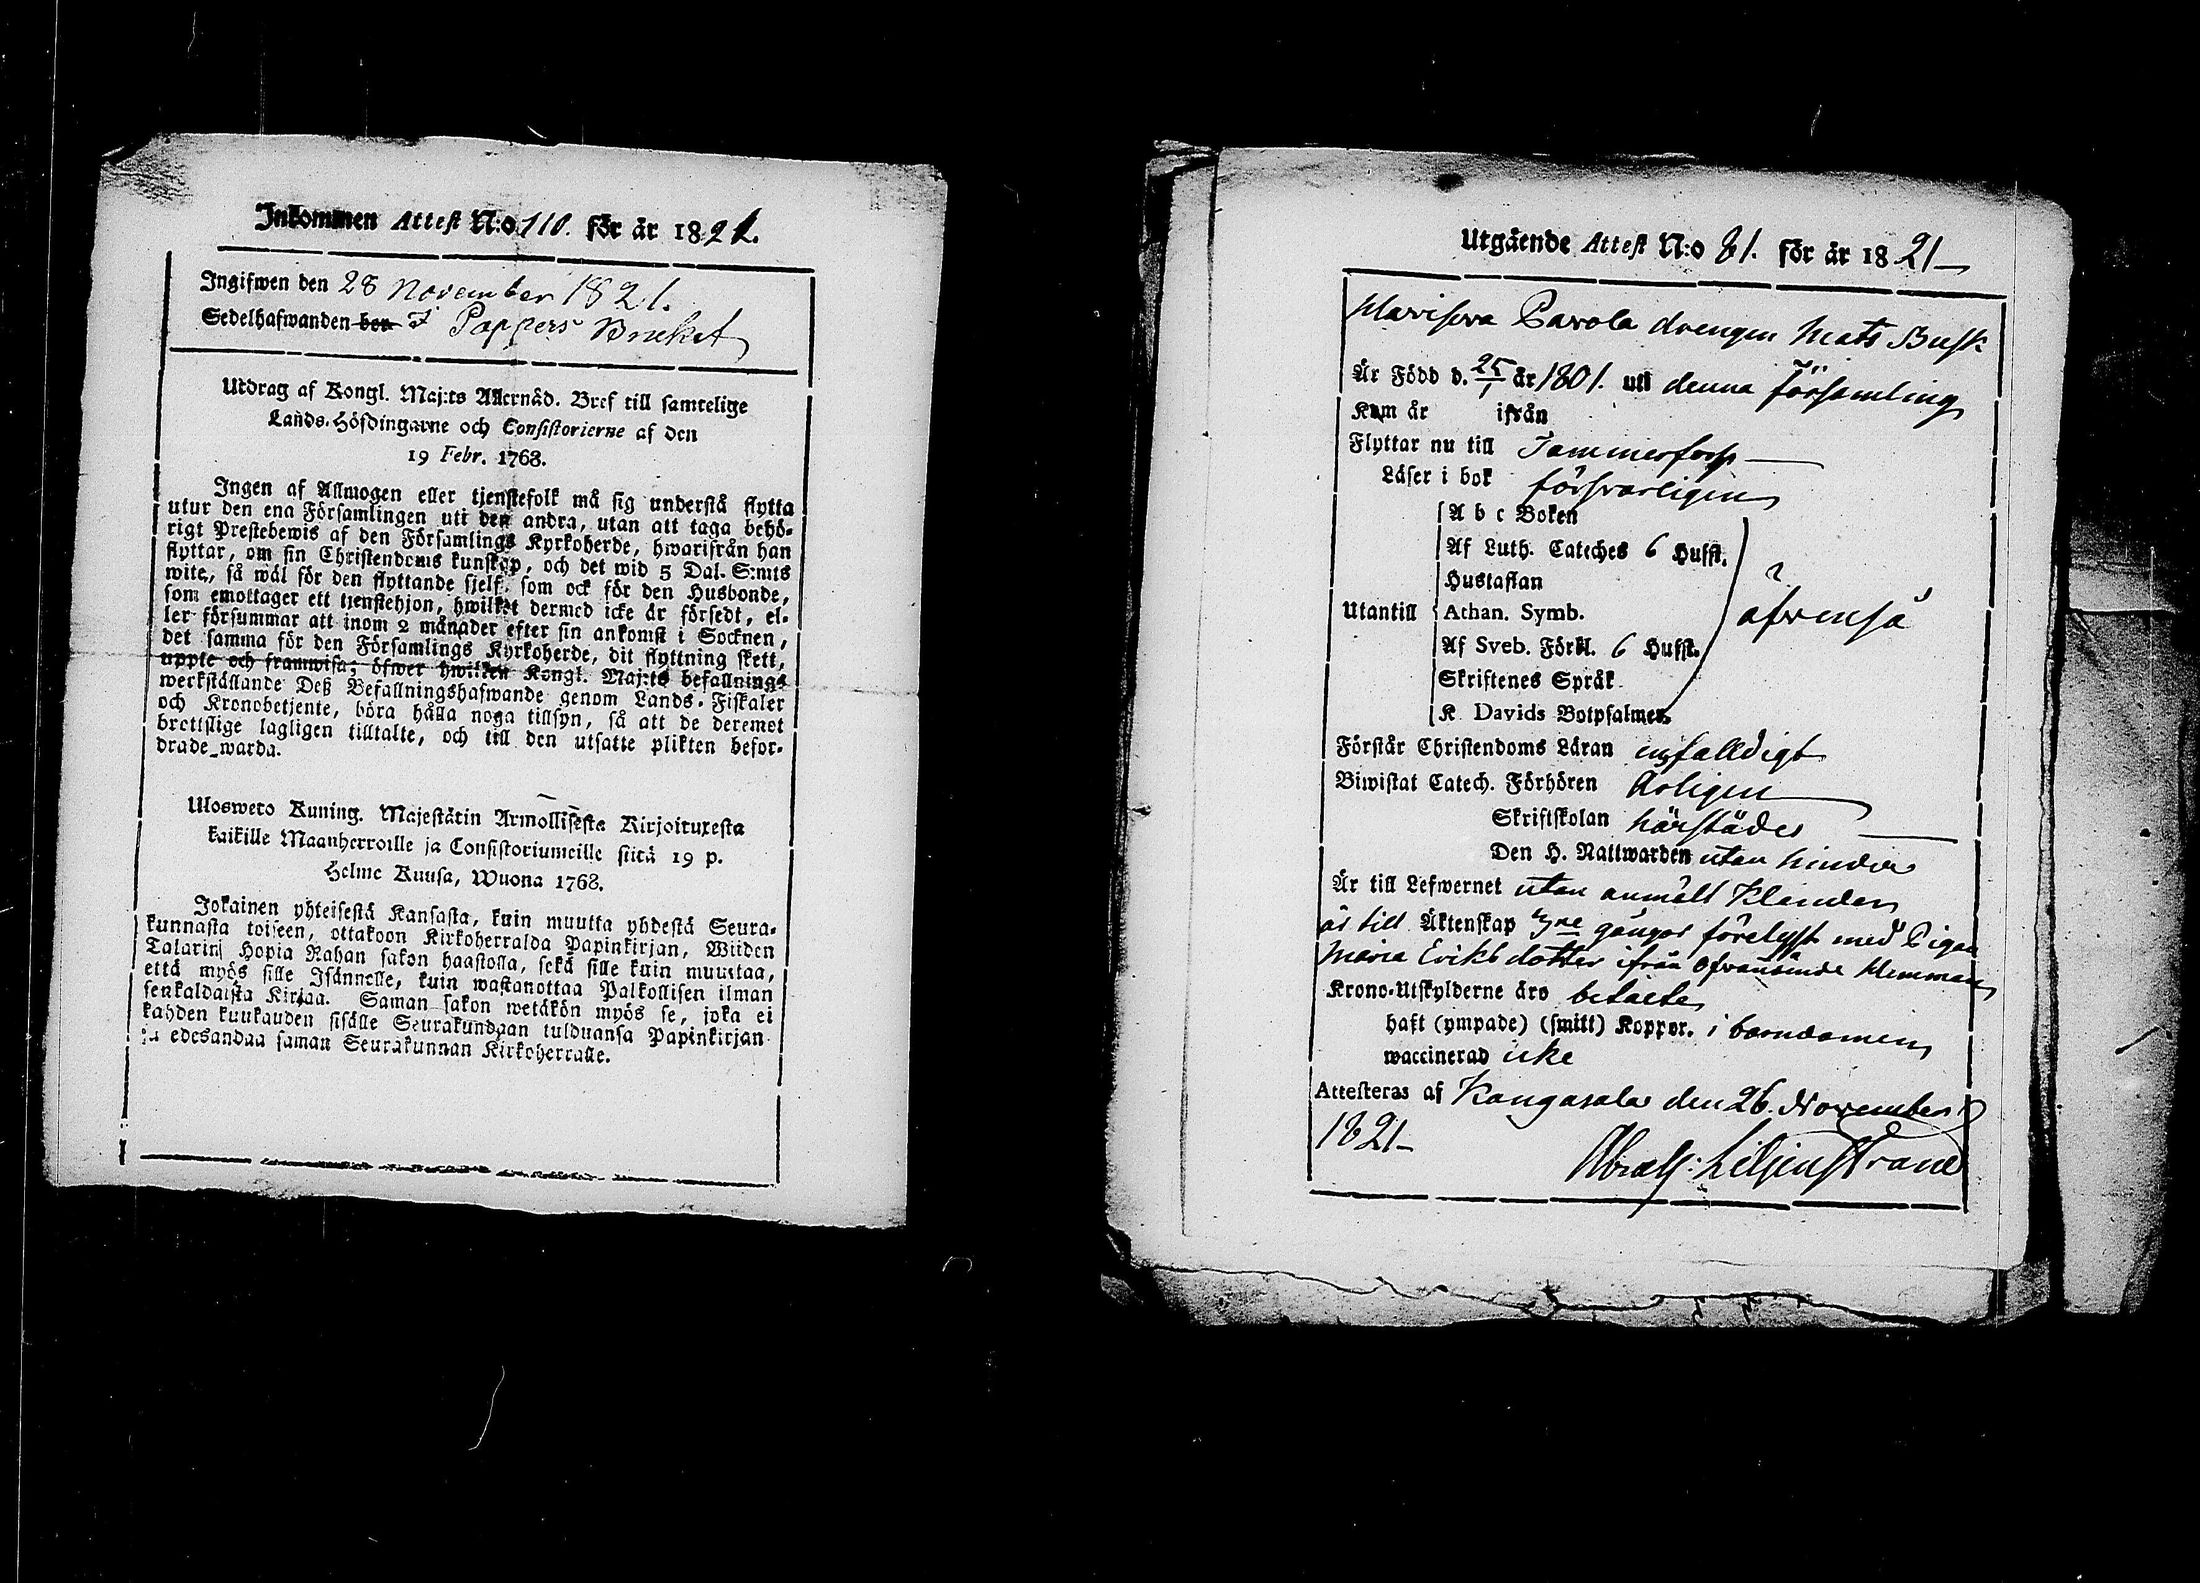 Inkommen Attest N:o 110. för år 1821.
Ingifwen den 28 November 1821.
Sedelhafwanden bor I Pappers Bruket
Utdrag af Kongl. Maj:ts Allernåd. Bref till samtelige
Lands-Höfdingarne och Consistorierne af den
19 Febr. 1768.
Ingen af Allmogen eller tjenstefolk må sig understå flytta
utur den ena Församlingen uti den andra, utan att taga behö-
rigt Prestebewis af den Församlings Kyrkoherde, hwarifrån han
flyttar, om sin Christendoms kunskap, och det wid 5 Dal. S:mts
wite, så wäl för den flyttande sjelf, som ock för den Husbonde,
som emottager ett tjenstehjon, hwilket dermed icke är försedt, el-
ler försummar att inom 2 månader efter sin ankomst i Socknen,
det samma för den Församlings Kyrkoherde, dit flyttning skett,
uppte och framwisa; öfwer hwilken Kongl. Maj:ts befallnings
werkställande Deß Befallningshafwande genom Lands-Fiskaler
och Kronobetjente, böra hålla noga tillsyn, så att de deremot
brottslige lagligen tilltalte, och till den utsatte plikten befor-
drade warda.
Ulosweto Kuning. Majestätin Armollisesta Kirjoituxesta
kaikille Maanherroille ja Consistoriumeille siitä 19 p.
Helme Kuusa, Wuona 1768.
Jokainen yhteisestä Kansasta, kuin muutta yhdestä Seura-
kunnasta toiseen, ottakoon Kirkoherralda Papinkirjan, Wiiden
Talarin Hopia Rahan sakon haastolla, sekä sille kuin muuttaa,
että myös sille Isännelle, kuin wastanottaa Palkollisen ilman
senkaldaista Kirjaa. Saman sakon wetäkön myös se, joka ei
kahden kuukauden sisälle Seurakundaan tulduansa Papinkirjan
ja edesandaa saman Seurakunnan Kirkoherralle.
Utgående Attest N:o 81. för år 1821
Parola drengen Mats Busk
Är Född d. 25/1 år 1801. uti denna församling
Kom år ifrån
Flyttar nu till Tammerfors
Läser i bok försvarligen
A b c Boken
Af Luth. Cateches 6 Hufst.
Hustaflan
Utantill Athan. Symb. äfvenså
Af Sveb. Förkl. 6 Hufst.
Skriftenes Språk
K. Davids Botpsalmer
Förstår Christendoms Läran enfalldigt
Biwistat Catech. Förhören årligen
Skriftskolan härstädes
Den H. Nattwarden utan hinder
Är till Lefwernet utan anmält klander
är till Äktenskap 3ne gånger förelyst med Pigan
Maria Eriksdotter ifrån ofvansände Hemman
Krono-Utskylderne äro betalte
haft (ympade) (smitt) Koppor. i barndomen
waccinerad icke
Attesteras af Kangasala den 26. November
1821
Abrah: Liljenstrand